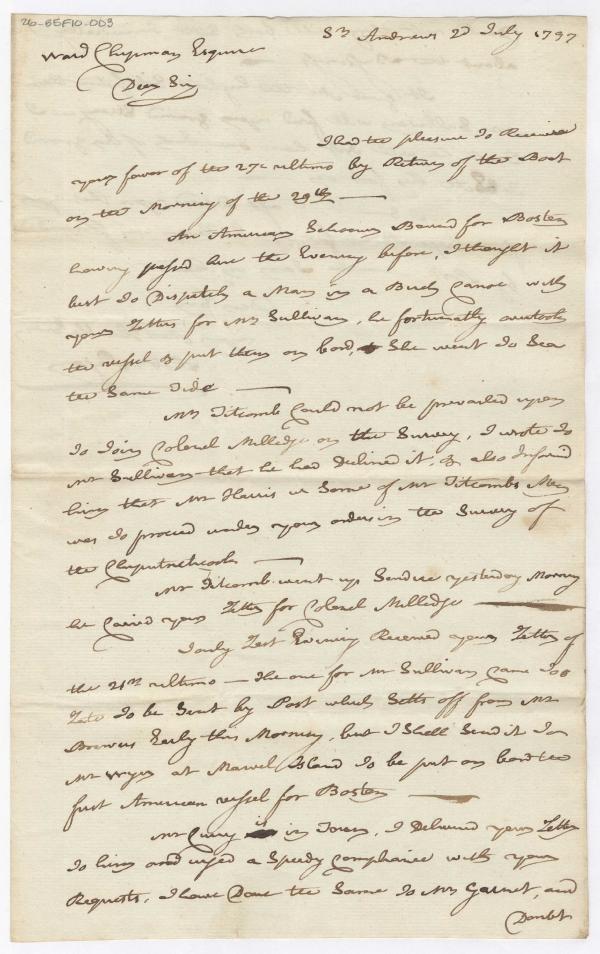 26-B5F10-D03
St Andrews 2d July 1797
Ward Chipman Esquire
Dear Sir
I had the pleasure to Receive
your favor of the 27th ultimo by Return of the Boat
on the Morning of the 29th
An American Schooner Bound for Boston
having passd here the Evening before, I thought it
best to Dispatch a Man in a Birch Canoe with
your Letters for Mr Sullivan, he fortunatly overtook
the vessel & put them on bord, She went to Sea
the Same Tide
Mr Titcomb Could not be prevailed upon
to Join Colonel Milledge on the Survey, I wrote to
Mr Sullivan that he had Declined it, & also Informd
him that Mr Harris or Some of Mr Titcombs Men
was to proceed under your orders in the Survey of
the Cheputnetcook
Mr Titcomb went up Sendire yesterday Morning
he Caried your Letter for Colonel Milledge
I only Last Evening Received your Letter of
the 21st ultimo — the one for Mr Sullivan Came too
Late to be Sent by Post which Setts off from Mr
Brewers Early this Morning, but I Shall Send it to
Mr Wyer at Island to be put on bord the
first American vessel for Boston
Mr Curry is in Town, I Delivered your Letter
to him and urged a Speedy Compliance with your
Requests, I have Done the Same to Mr Garnet, and
Doubt